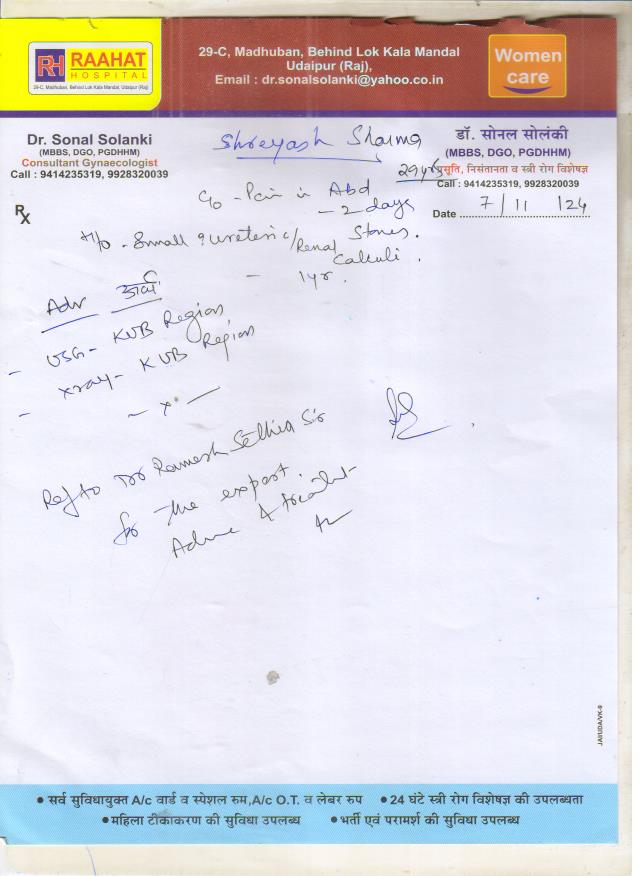 RH RAAHAT
HOSPITAL
29-C, Madhuban, Behind Lok Kala Mandal, Udaipur (Raj)
29-C, Madhuban, Behind Lok Kala Mandal
Udaipur (Raj),
Email : dr.sonalsolanki@yahoo.co.in
Women
care
Dr. Sonal Solanki
(MBBS, DGO, PGDHHM)
Consultant Gynaecologist
Call : 9414235319, 9928320039
Shreyash Sharma
29yrs
डॉ. सोनल सोलंकी
(MBBS, DGO, PGDHHM)
प्रसूति, निसंतानता व स्त्री रोग विशेषज्ञ
Call : 9414235319, 9928320039
Date 7/11/24
Rx
c/o - Pain in Abd
- 2 days
H/o - Small ureteric/Renal Stones.
Calculi.
- 1yr.
Adv
- USG - KUB Region
- xray - KUB Region
- x -
Ref to Dr Ramesh Sethia Sir
for the expert
Advice &
JAI/UDAI/VK-9
• सर्व सुविधायुक्त A/c वार्ड व स्पेशल रुम,A/c O.T. व लेबर रुप • 24 घंटे स्त्री रोग विशेषज्ञ की उपलब्धता
• महिला टीकाकरण की सुविधा उपलब्ध • भर्ती एवं परामर्श की सुविधा उपलब्ध